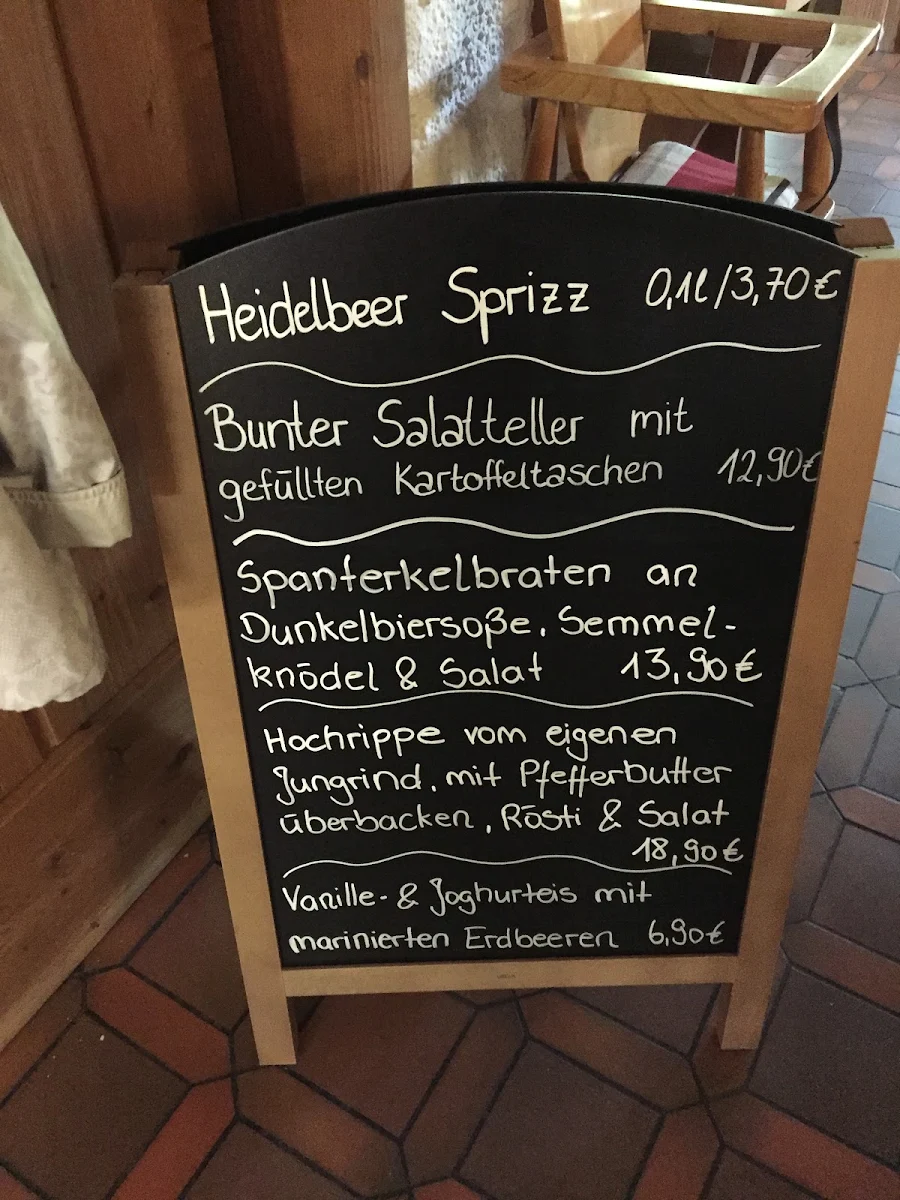 Heidelbeer Sprizz 0,1l/3,70€
Bunter Salatteller mit
gefüllten Kartoffeltaschen 12,90€
Spanferkelbraten an
Dunkelbiersoße, Semmel-
knödel & Salat 13,90€
Hochrippe vom eigenen
Jungrind, mit Pfefferbutter
überbacken, Rösti & Salat
18,90€
Vanille- & Joghurteis mit
marinierten Erdbeeren 6,90€